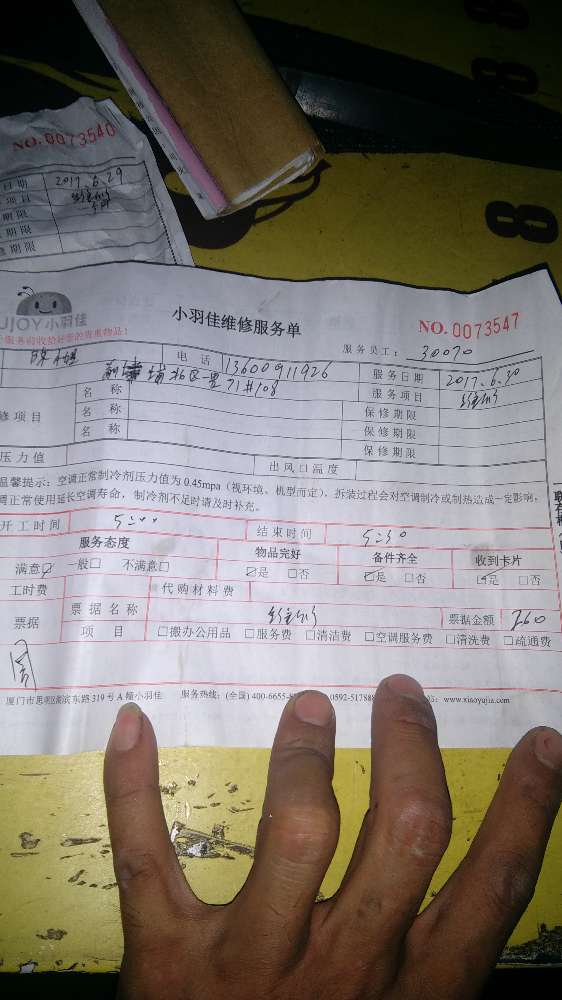 NO.0073540
日期 2017.6.29
项目
期限
期限
期限
UJOY小羽佳
小羽佳维修服务单
NO.0073547
服务前收拾好您的贵重物品！
服务员工： 30070
电话 13600911926
服务日期 2017.6.30
北区一里71#108
服务项目
修项目
名称
保修期限
名称
保修期限
名称
保修期限
压力值
出风口温度
温馨提示：空调正常制冷剂压力值为0.45mpa（视环境、机型而定），拆装过程会对空调制冷或制热造成一定影响，
调正常使用延长空调寿命，制冷剂不足时请及时补充。
开工时间 5:00
结束时间 5:30
服务态度
物品完好
备件齐全
收到卡片
满意☑ 一般□ 不满意□
☑是 □否
☑是 □否
☑是 □否
工时费
代购材料费
票据
票据名称
票据金额 260
项目 □搬办公用品 □服务费 □清洁费 □空调服务费 □清洗费 □疏通费
厦门市思明区 滨东路319号A幢小羽佳
服务热线：(全国) 400-6655-
0592-51788
www.xiaoyujia.com